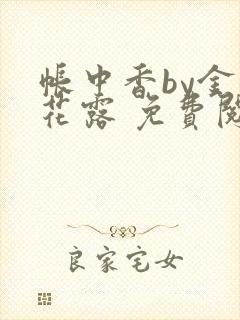 帳中香by金
花露 免費閱
良家宅女